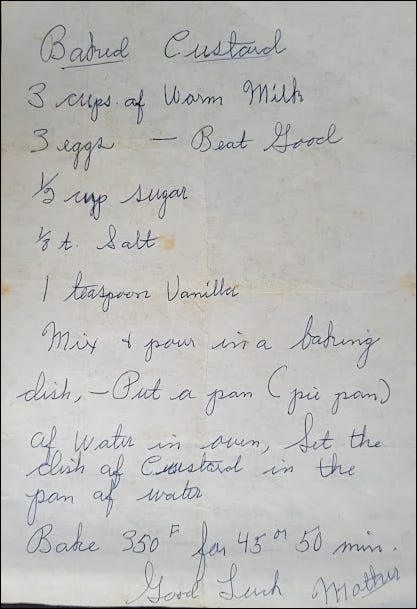 Baked Custard
3 cups of Warm Milk
3 eggs — Beat Good
1/2 cup sugar
1/8 t. Salt
1 teaspoon Vanilla
Mix + pour in a baking
dish, — Put a pan (pie pan)
of Water in oven, Set the
dish of Custard in the
pan of water
Bake 350 F for 45 or 50 min.
Good Luck Mother